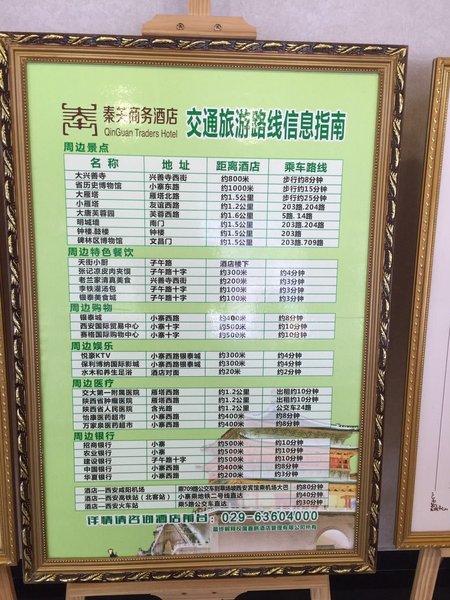 秦关商务酒店
QinGuan Traders Hotel
交通旅游路线信息指南
周边景点
名称 地址 距离酒店 乘车路线
大兴善寺 兴善寺西街 约800米 步行约8分钟
省历史博物馆 小寨东路 约1000米 步行约15分钟
大雁塔 雁塔北路 约1.5公里 步行约25分钟
小雁塔 友谊西路 约1.2公里 203路.204路
大唐芙蓉园 芙蓉西路 约1.6公里 5路.14路
明城墙 南门 约1.5公里 203路.204路
钟楼.鼓楼 钟楼 约1.5公里 203路
碑林区博物馆 文昌门 约1.5公里 203路.709路
周边特色餐饮
天街小厨 子午路 酒店楼下
张记凉皮肉夹馍 子午路十字 约300米 约4分钟
老兰家清真美食 兴善寺西街 约200米 约3分钟
李铁灌汤包 子午路十字 约100米 约1分钟
银泰美食城 子午路十字 约300米 约3分钟
周边购物
银泰城 小寨西路 约400米 约8分钟
西安国际贸易中心 小寨十字 约500米 约10分钟
赛格国际购物中心 小寨十字 约500米 约10分钟
周边娱乐
悦豪KTV 小寨西路银泰城 约300米 约4分钟
保利博纳国际影城 小寨西路银泰城 约300米 约4分钟
水木和养生足浴 酒店对面 约20米 约2分钟
周边医疗
交大第一附属医院 雁塔西路 约1.2公里 出租约10分钟
陕西省肿瘤医院 雁塔西路 约1.2公里 出租约10分钟
陕西省人民医院 含光路 约1.2公里 公交车24路
怡康医药超市 小寨西路 约200米 约2分钟
万家泉医药超市 小寨西路 约200米 约2分钟
周边银行
招商银行 小寨 约500米 约10分钟
农业银行 小寨 约500米 约10分钟
建设银行 子午路十字 约300米 约3分钟
中国银行 小寨 约500米 约10分钟
华夏银行 小寨 约500米 约10分钟
酒店—西安咸阳机场 约80分钟
酒店—西安高铁站（北客站） 小寨乘地铁二号线直达 约50分钟
酒店—西安火车站 乘5路公交车直达 约30分钟
详情请咨询酒店前台：029-63604000